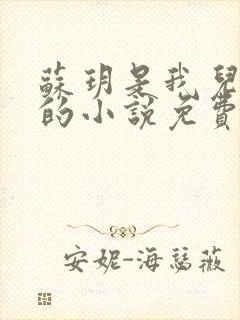 蘇玥是我兒
的小說免費
安妮-海瑟薇